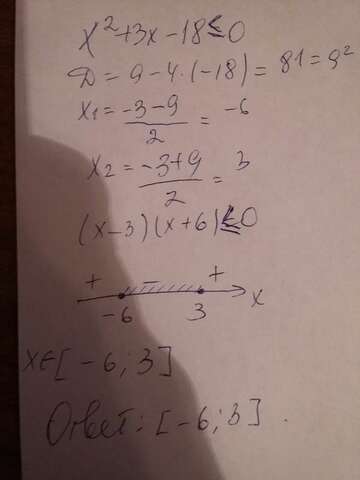 x²+3x-18≤0
D = 9-4·(-18) = 81 = 9²
x₁ = (-3-9)/2 = -6
x₂ = (-3+9)/2 = 3
(x-3)(x+6)≤0
+ - +
-6 3 x
x∈[-6;3]
Ответ: [-6;3].